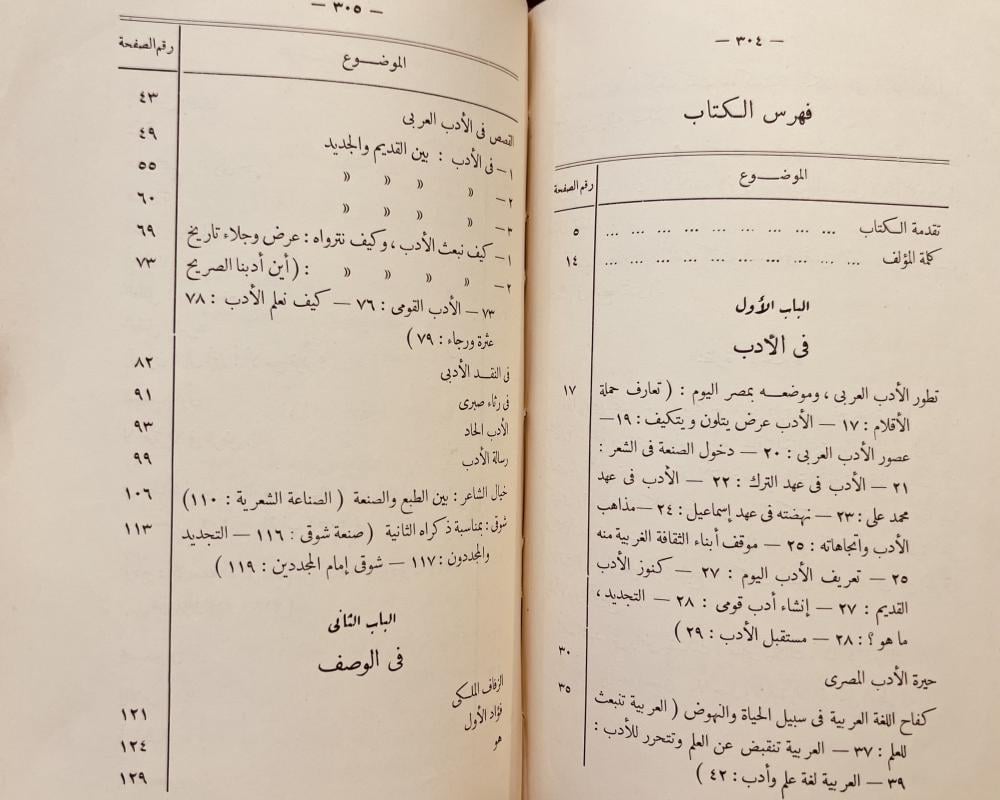 — ٣٠٤ —
فهرس الكتاب
الموضـــوع رقم الصفحة
تقدمة الكتاب ... ... ... ... ... ... ... ... ... ٥
كلمة المؤلف ... ... ... ... ... ... ... ... ... ١٤
الباب الأول
فى الأدب
تطور الأدب العربى ، وموضعـه بمصر اليوم : ( تعارف حملة ١٧
الأقلام : ١٧ — الأدب عرض يتلون ويتكيف : ١٩ —
عصور الأدب العربى : ٢٠ — دخول الصنعة فى الشعر :
٢١ — الأدب فى عهد الترك : ٢٢ — الأدب فى عهد
محمد على : ٢٣ — نهضته فى عهد إسماعيل : ٢٤ — مذاهب
الأدب واتجاهاته : ٢٥ — موقف أبناء الثقافة الغربية منه
٢٥ — تعريف الأدب اليوم : ٢٧ — كنوز الأدب
القديم : ٢٧ — إنشاء أدب قومى : ٢٨ — التجديد ،
ما هو ؟ : ٢٨ — مستقبل الأدب : ٢٩ )
حيرة الأدب المصرى ٣٠
كفاح اللغة العربية فى سبيل الحياة والنهوض ( العربية تنبعث ٣٥
للعلم : ٣٧ — العربية تنقبض عن العلم وتتحرر للأدب :
٣٩ — العربية لغة علم وأدب : ٤٢ )
— ٣٠٥ —
الموضـــوع رقم الصفحة
القصص فى الأدب العربى ٤٣
١ — فى الأدب : بين القديم والجديد ٤٩
٢ — « « « « ٥٥
٣ — « « « « ٦٠
١ — كيف نبعث الأدب ، وكيف نترواه : عرض وجلاء تاريخ ٦٩
٢ — « « « « : ( أين أدبنا الصريح ٧٣
٧٣ — الأدب القومى : ٧٦ — كيف نعلم الأدب : ٧٨
عثرة ورجاء : ٧٩ )
فى النقـد الأدبى ٨٢
فى رثاء صبرى ٩١
الأدب الحاد ٩٣
رسالة الأدب ٩٩
خيال الشاعر : بين الطبع والصنعة ( الصناعة الشعرية : ١١٠ ) ١٠٦
شوقى : بمناسبة ذكراه الثانية ( صنعة شوقى : ١١٦ — التجديد ١١٣
والمجددون : ١١٧ — شوقى إمام المجددين : ١١٩ )
الباب الثانى
فى الوصف
الزفاف الملكى ١٢١
فؤاد الأول ١٢٤
هو ١٢٩